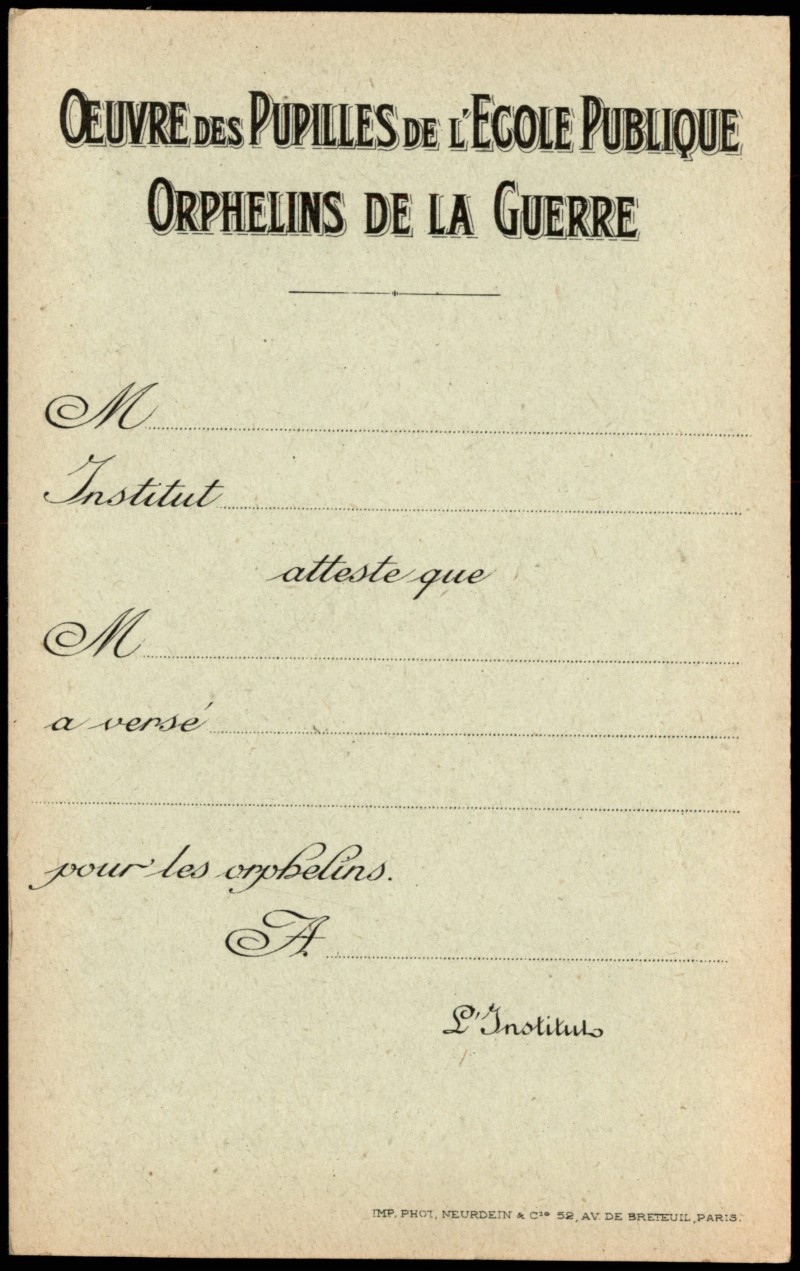 ŒUVRE DES PUPILLES DE L'ECOLE PUBLIQUE
ORPHELINS DE LA GUERRE
M
Institut
atteste que
M
a versé
pour les orphelins.
A
L'Institut
IMP. PHOT. NEURDEIN & Cie 52, AV. DE BRETEUIL, PARIS.